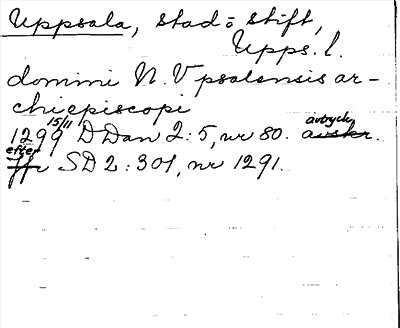 Uppsala, stad = stift,
Upps. l.
domini N. Vpsalensis ar-
chiepiscopi
1299 15/11 DDan 2:5, nr 80. avskr. avtryck
ffr efter SD 2:301, nr 1291.